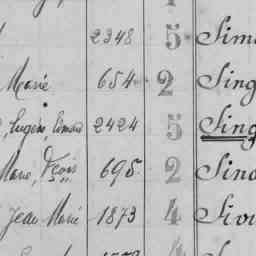 2348 5 Sim
Marie 654 2 Sing
, Eugène, Edmond 2424 5 Sing
Marie, Frois 695 2 Sino
Jean Marie 1873 4 Siou
4